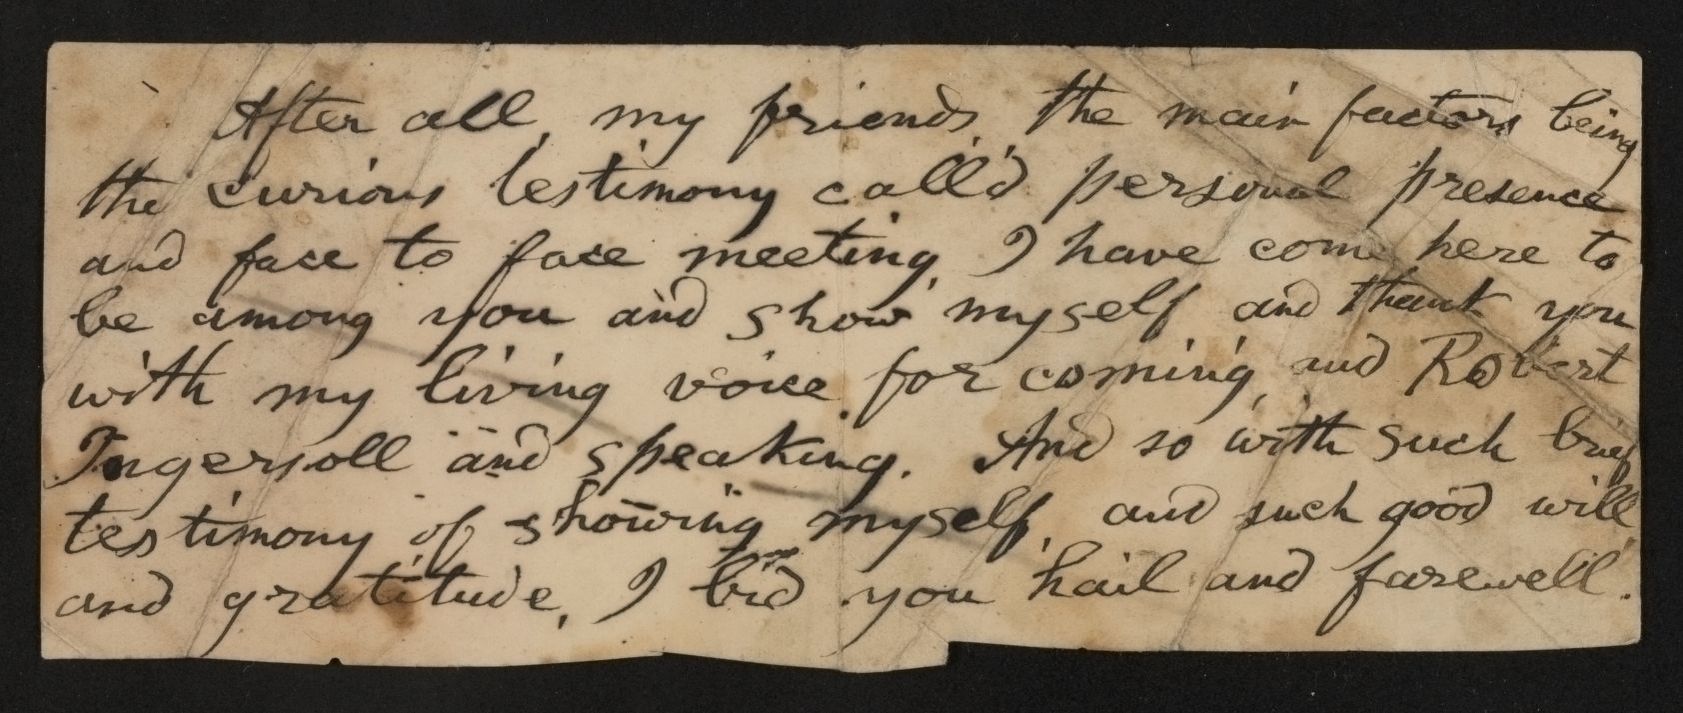 After all, my friends, the main factors being
the curious testimony call'd personal presence
and face to face meeting, I have come here to
be among you and show myself, and thank you
with my living voice for coming, and Robert
Ingersoll and speaking. And so with such brief
testimony of showing myself, and such good will
and gratitude, I bid you hail and farewell.